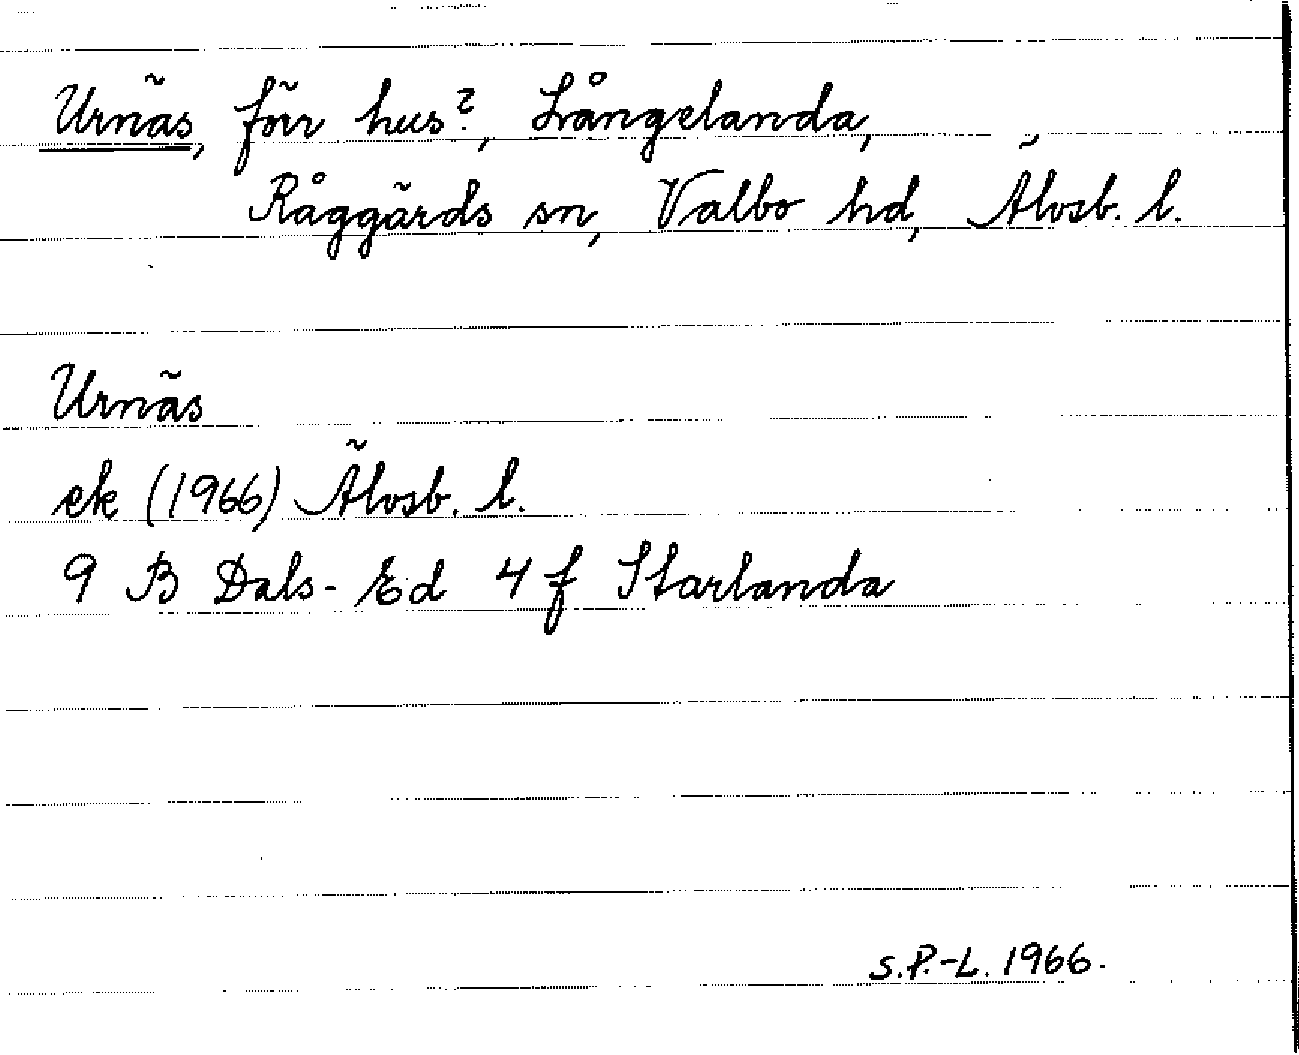 Urnäs, förr hus?, Långelanda,
Råggärds sn, Valbo hd, Älvsb. l.
Urnäs
ek (1966) Älvsb. l.
9 B Dals-Ed 4 f Starlanda
S.P.-L. 1966.